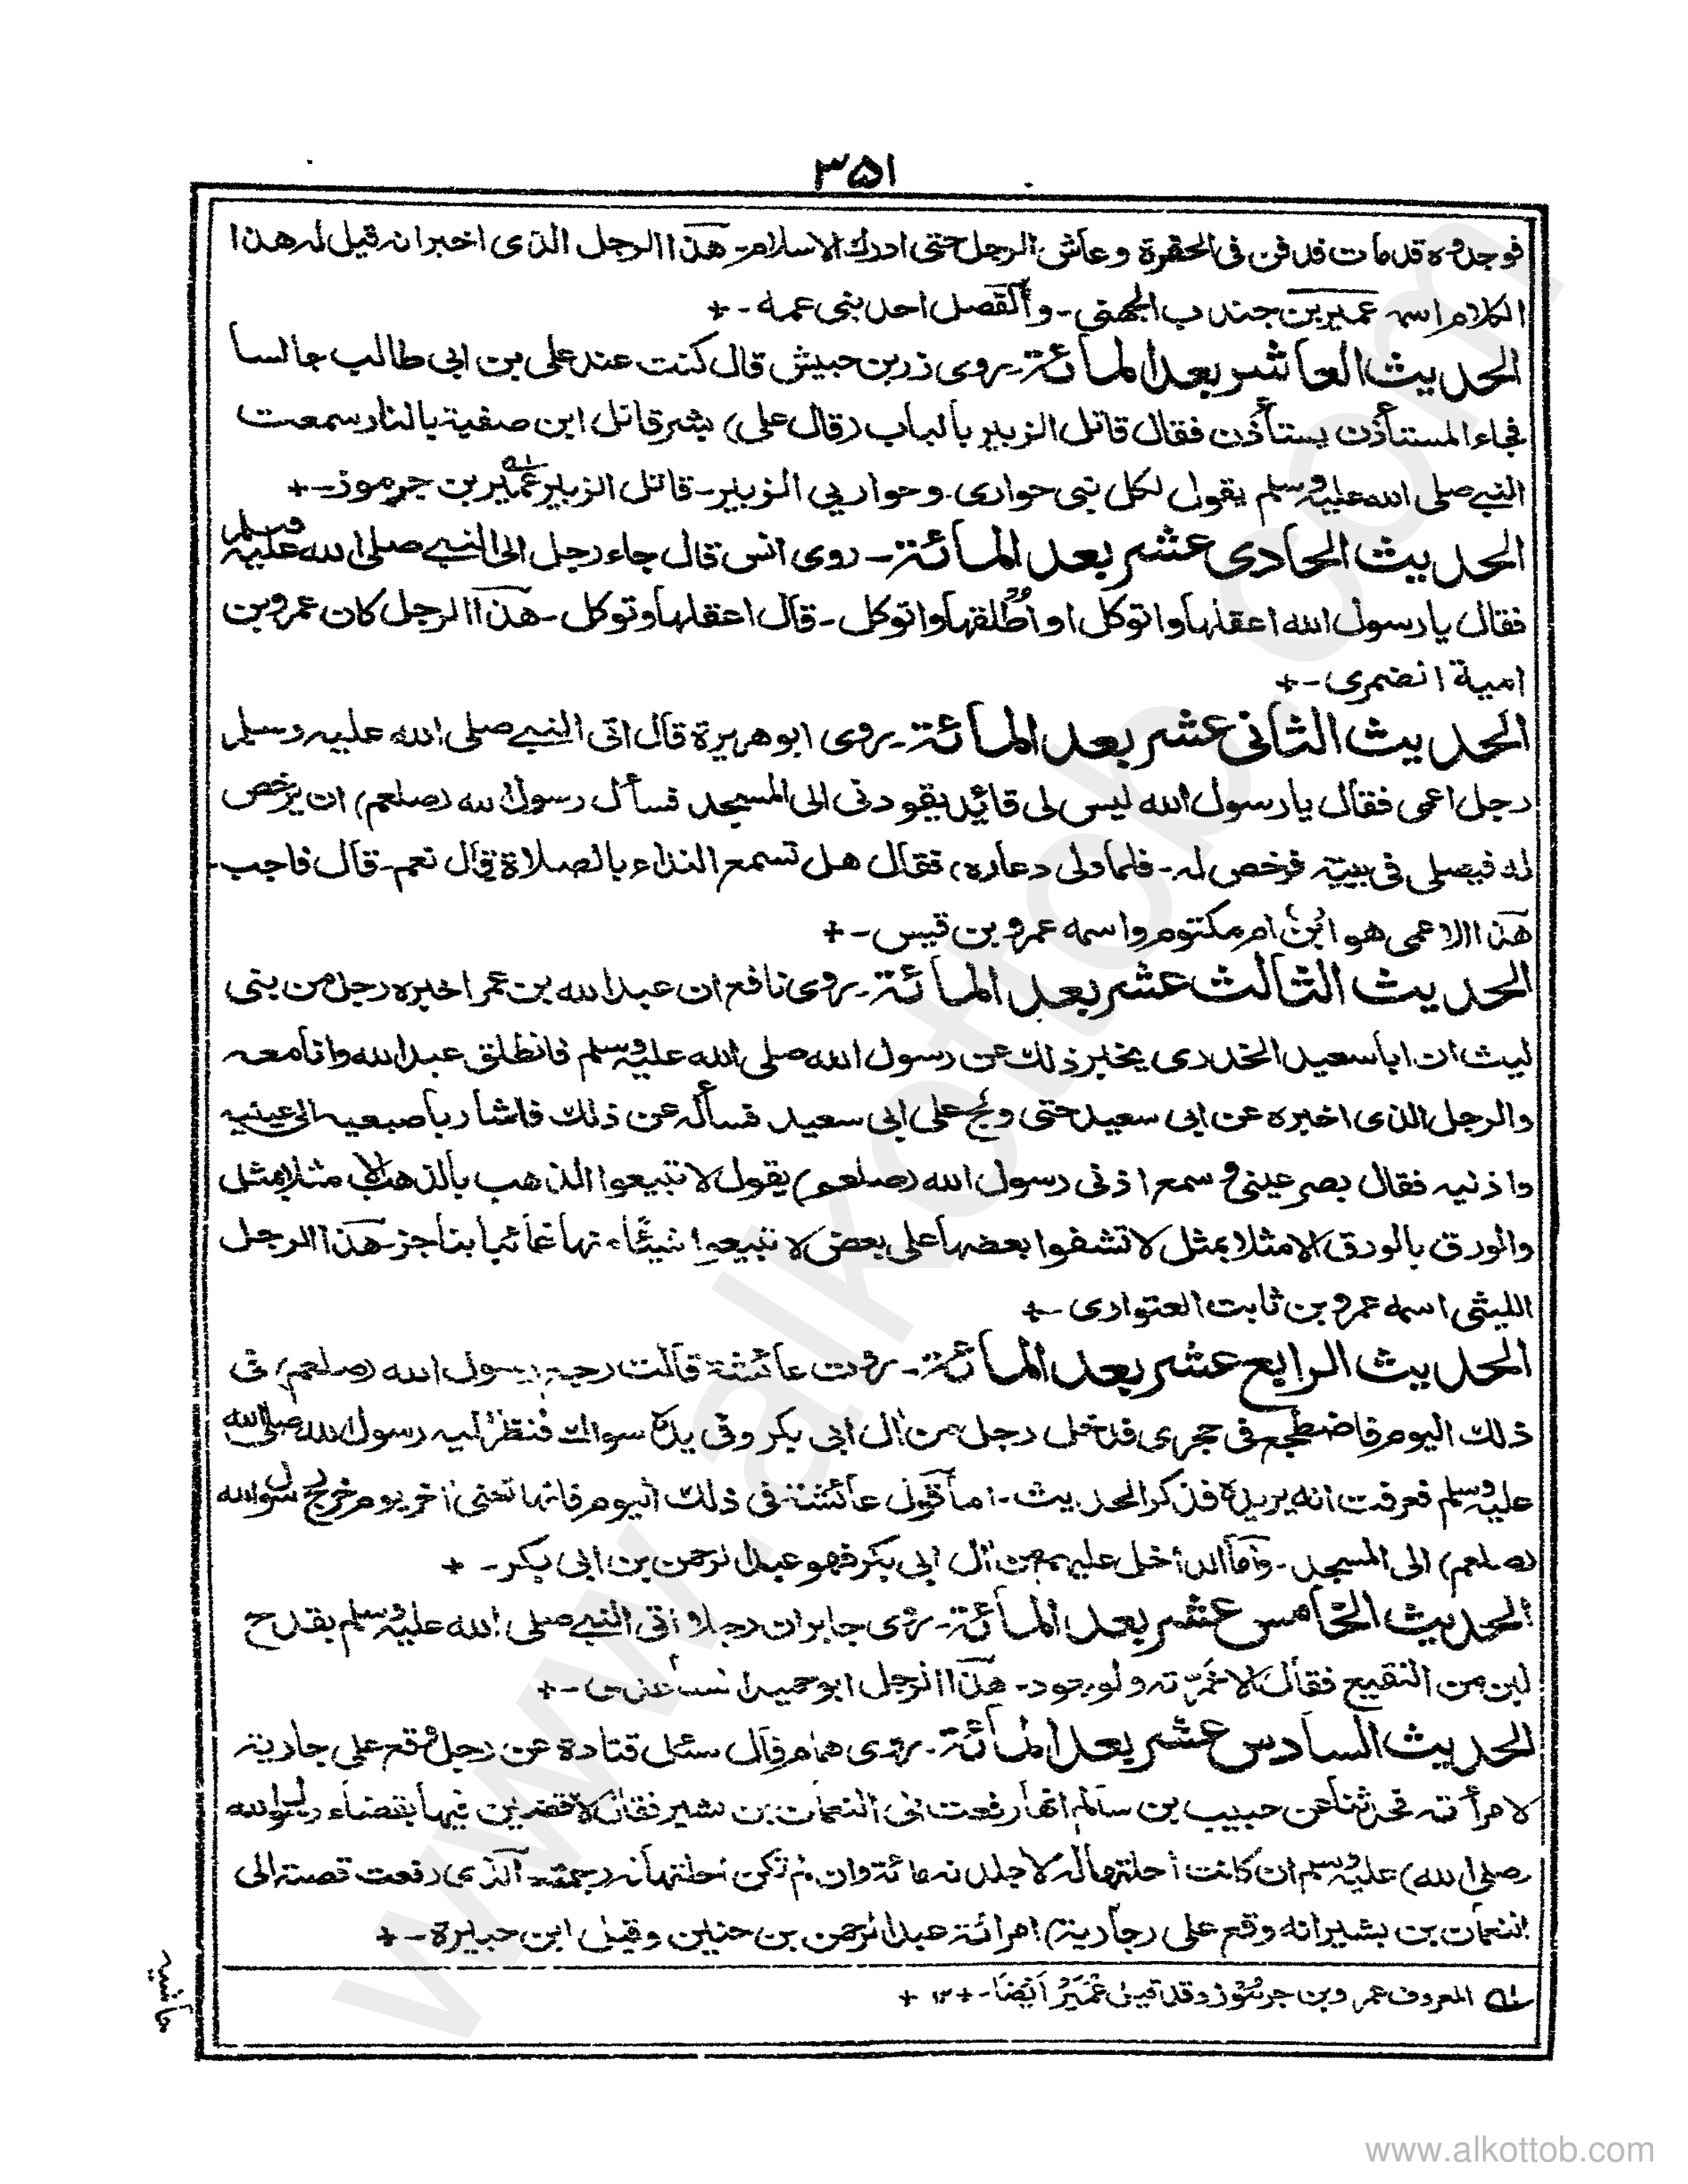 ۳۵۱
فوجدوه قد مات فدفن فى الحفرة وعاش الرجل حتى ادرك الاسلام ـ هذا الرجل الذى اخبر انه قيل له هذا
الكلام اسمه عمير بن جندب الجهنى ـ والقصل احد بنى عمه ـ +
الحديث العاشر بعد المائة ـ روى زر بن حبيش قال كنت عند على بن ابى طالب جالسا
فجاء المستأذن يستأذن فقال قاتل الزبير بالباب (قال على) بشر قاتل ابن صفية بالنار سمعت
النبى صلى الله عليه وسلم يقول لكل نبى حوارى ـ وحواريي الزبير ـ قاتل الزبير عمير بن جرموز ـ +
الحديث الحادى عشر بعد المائة ـ روى انس قال جاء رجل الى النبى صلى الله عليه وسلم
فقال يا رسول الله اعقلها واتوكل او اطلقها واتوكل ـ قال اعقلها وتوكل ـ هذا الرجل كان عمرو بن
امية الضمرى ـ +
الحديث الثانى عشر بعد المائة ـ روى ابو هريرة قال اتى النبى صلى الله عليه وسلم
رجل اعمى فقال يا رسول الله ليس لى قائد يقودنى الى المسجد فسأل رسول الله (صلعم) ان يرخص
له فيصلى فى بيته فرخص له ـ فلما ولى دعاه، فقال هل تسمع النداء بالصلاة قال نعم ـ قال فاجب ـ
هذا الاعمى هو ابن ام مكتوم واسمه عمرو بن قيس ـ +
الحديث الثالث عشر بعد المائة ـ روى نافع ان عبد الله بن عمر اخبره رجل من بنى
ليث ان ابا سعيد الخدرى يخبر ذلك عن رسول الله صلى الله عليه وسلم فانطلق عبد الله وانا معه
والرجل الذى اخبره عن ابى سعيد حتى ولج على ابى سعيد فسأله عن ذلك فاشار باصبعيه الى عينيه
واذنيه فقال بصر عينى وسمع اذنى رسول الله (صلعم) يقول لا تبيعوا الذهب بالذهب الا مثلا بمثل
والورق بالورق الا مثلا بمثل لا تشفوا بعضها على بعض لا تبيعوا شيئاء نها غائبا بناجز ـ هذا الرجل
الليثى اسمه عمرو بن ثابت العتوارى ـ +
الحديث الرابع عشر بعد المائة ـ روت عائشة قالت رجع رسول الله (صلعم) فى
ذلك اليوم فاضطجع فى حجرى فدخل رجل من ال ابى بكر وفى يده سواك فنظر اليه رسول الله صلى الله
عليه وسلم فعرفت انه يريده فذكر الحديث ـ اما قول عائشة فى ذلك اليوم فانها تعنى اخر يوم خرج رسول الله
(صلعم) الى المسجد ـ واما الداخل عليهم من ال ابى بكر فهو عبد الرحمن بن ابى بكر ـ +
الحديث الخامس عشر بعد المائة ـ روى جابر ان رجلا اتى النبى صلى الله عليه وسلم بقدح
لبن من النقيع فقال الا خمرته ولو بعود ـ هذا الرجل ابو حميد الساعدى ـ +
الحديث السادس عشر بعد المائة ـ روى همام قال سئل قتادة عن رجل وقع على جارية
لامرأته فحدثنا عن حبيب بن سالم انها رفعت الى النعمان بن بشير فقال لاقضين فيها بقضاء رسول الله
(صلى الله) عليه وسلم ان كانت احلتها له لاجلدنه مائة وان لم تكن احلتها له رجمته ـ الذى رفعت قصته الى
النعمان بن بشير انه وقع على (جارية) امرائة عبد الرحمن بن حنين وقيل ابن حبيرة ـ +
له المعروف عمرو بن جرموز وقد قيل عمير ايضا ـ + ١٢ +
حاشيه
www.alkottob.com
www.alkottob.com